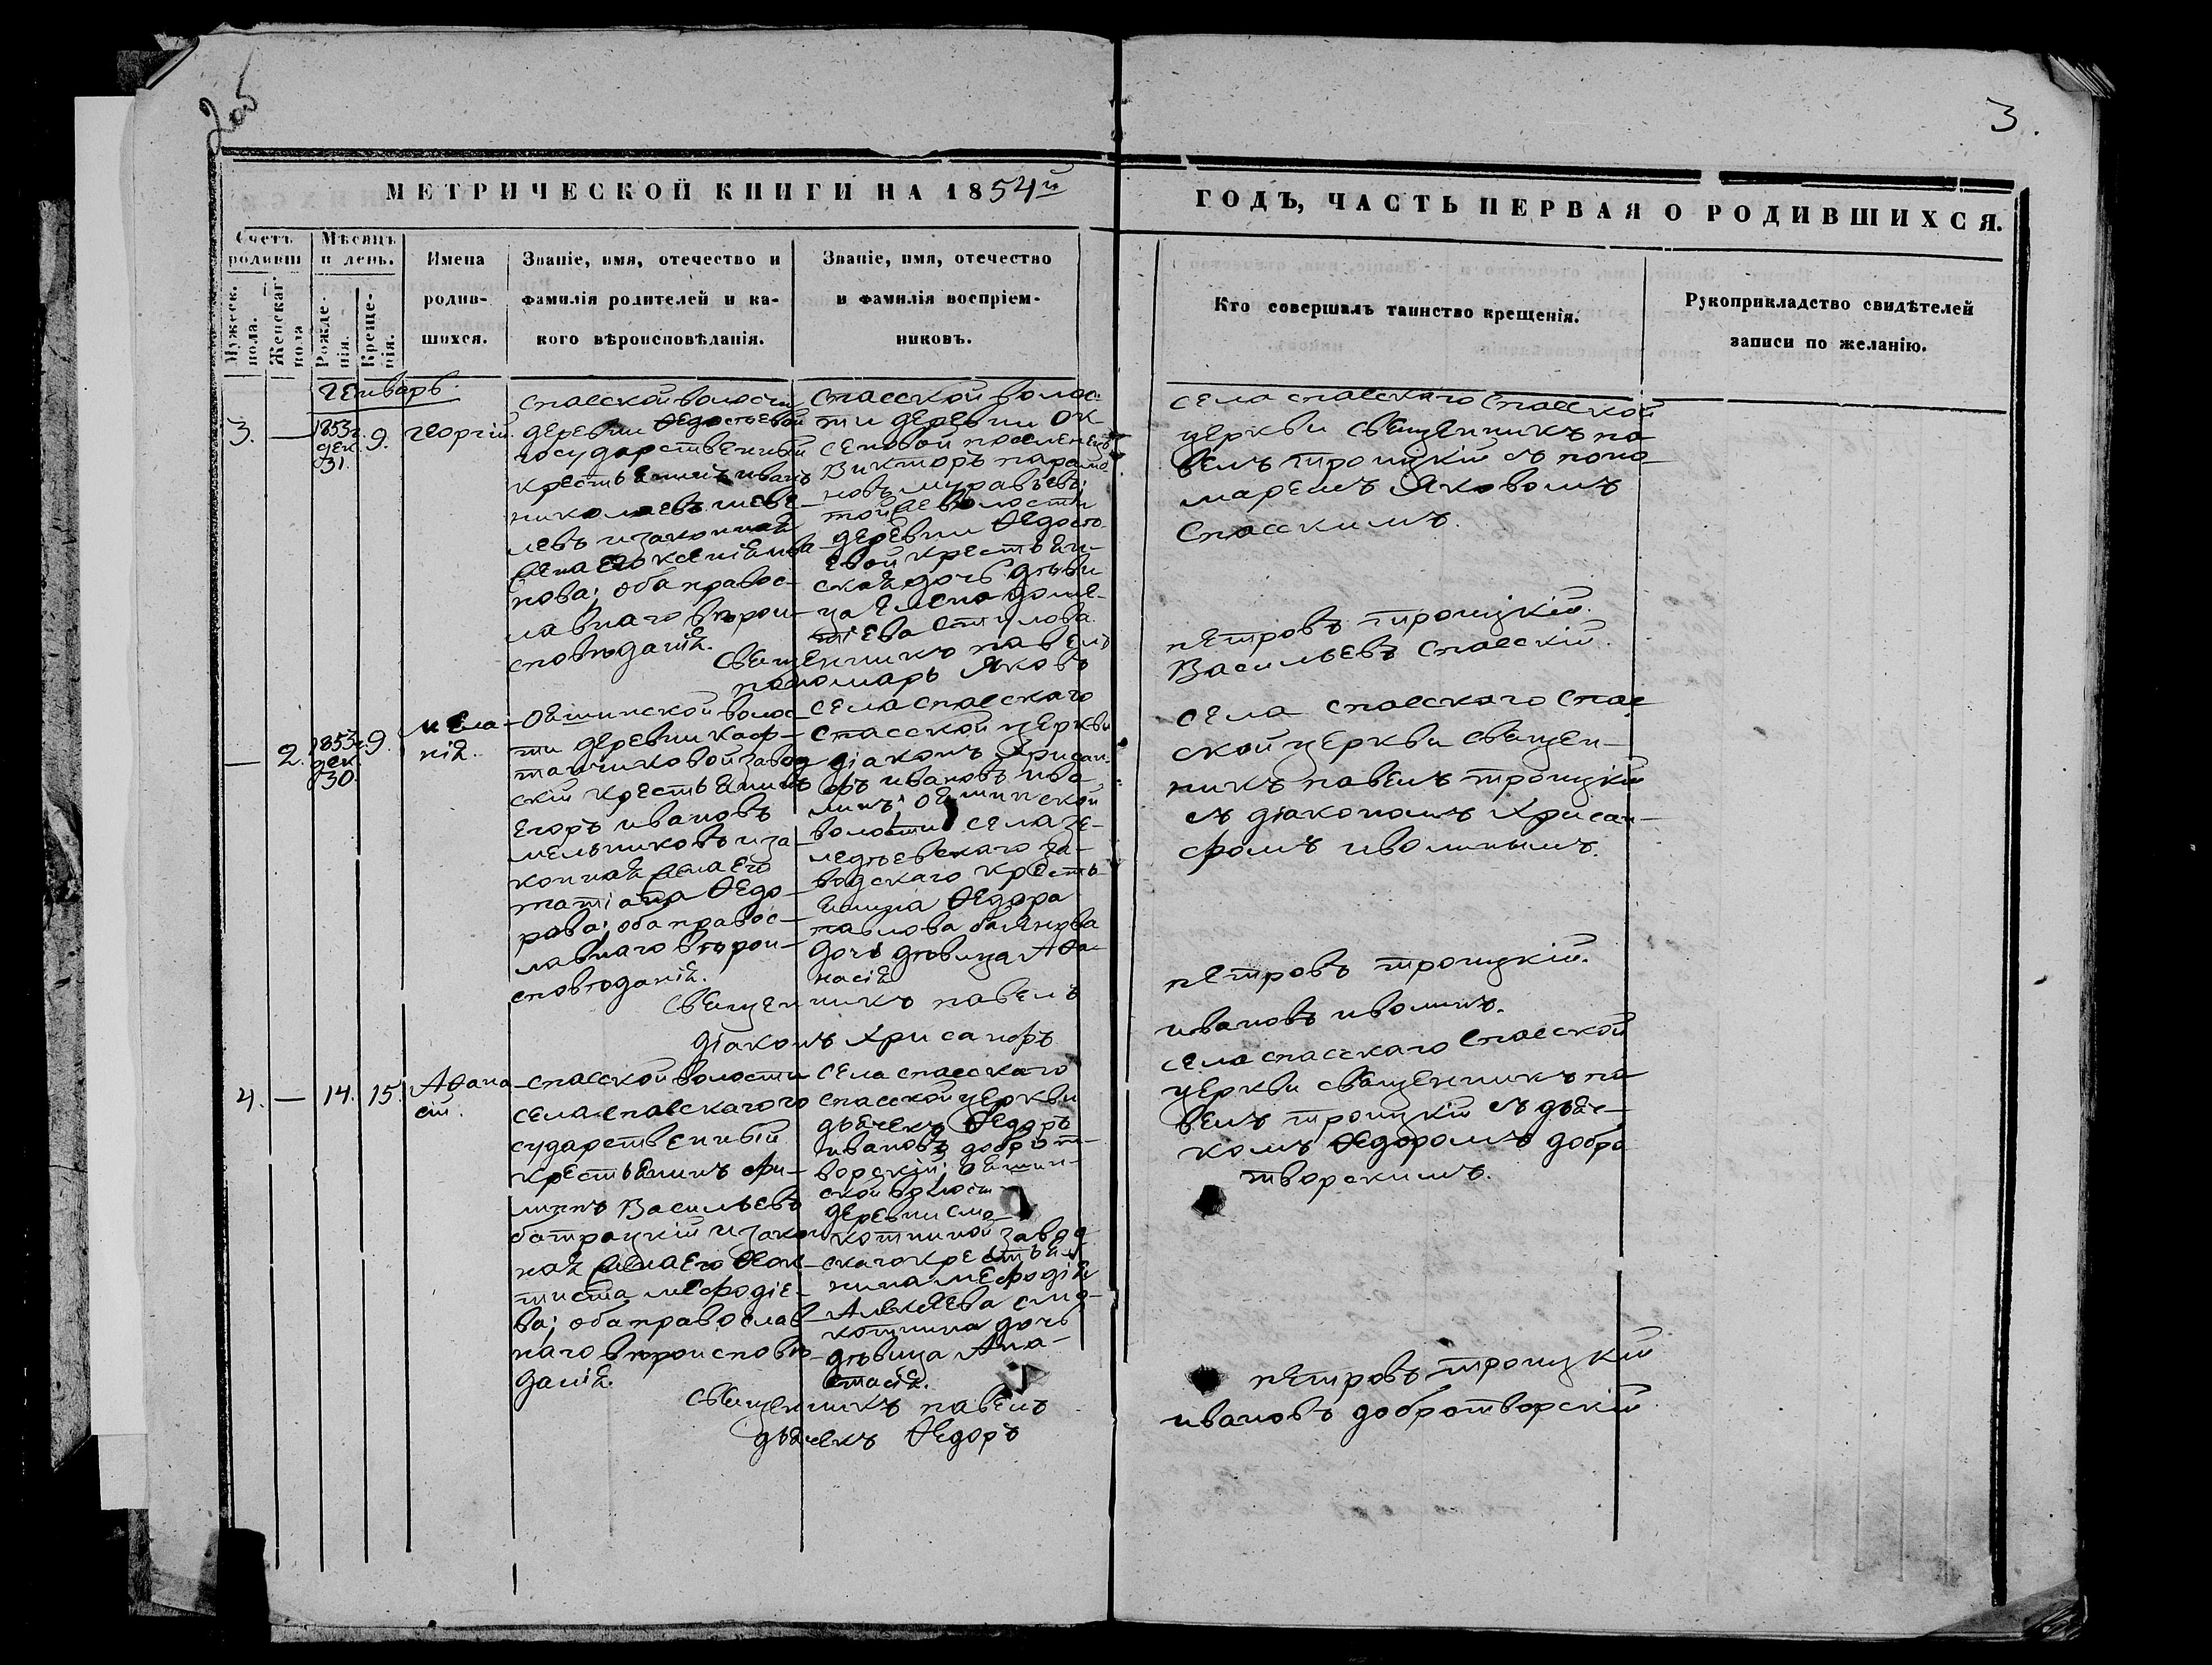 2об
3.
МЕТРИЧЕСКОЙ КНИГИ НА 1854й
ГОДЪ, ЧАСТЬ ПЕРВАЯ О РОДИВШИХСЯ.
Счетъ родивш
Мужеск. пола.
Женскаг. пола
Мѣсяцъ и день.
Рожденія.
Крещенія.
Имена
родив-
шихся.
Званіе, имя, отечество и
фамилія родителей и ка-
кого вѣроисповѣданія.
Званіе, имя, отечество
и фамилія воспріем-
никовъ.
Кто совершалъ таинство крещенія.
Рукоприкладство свидѣтелей
записи по желанію.
Генварь.
3.
—
1853г.
дек.
31.
9.
Георгій.
Спасской волости
деревни Ѳедосѣевой
государственный
крестьянинъ Иванъ
Николаевъ Шеве-
левъ и законная
жена его Ксенія Ива
нова; оба правос-
лавнаго вѣрои-
сповѣданія.
Спасской волос-
ти деревни Ок
сеновой поселенецъ
Викторъ Парамо
новъ Муравьевъ;
той же волости
деревни Ѳедосѣ-
евой крестьян-
ская дочь дѣви
ца Елена Доме-
тіева Стулова.
Священникъ Павелъ
пономарь Яковъ
Села Спасскаго Спасской
церкви священникъ Па
велъ Троицкій съ поно-
маремъ Яковомъ
Спасскимъ.
Петровъ Троицкій.
Васильевъ Спасскій.
—
2.
1853г.
дек.
30.
9.
Мела-
нія.
Оешинской волос-
ти деревни Каф-
танчиковой завод
скій крестьянинъ
Егоръ Ивановъ
Мельниковъ и за-
конная жена его
Татіана Ѳедо-
рова; оба правос-
лавнаго вѣрои-
сповѣданія.
Села Спасскаго
Спасской церкви
діаконъ Хрисан-
фъ Ивановъ Иво
линъ; Оешинской
волости села Зе-
ледѣевскаго за-
водскаго кресть
янина Ѳедора
Павлова Баянова
дочь дѣвица Аѳа-
насія
Священникъ Павелъ
діаконъ Хрисанфъ
Села Спасскаго Спас
ской церкви священ-
никъ Павелъ Троицкій
съ діакономъ Хрисан-
фомъ Иволинымъ.
Петровъ Троицкій.
Ивановъ Иволинъ.
4.
—
14.
15.
Аѳана-
сій.
Спасской волости
села Спасскаго го
сударственный
крестьянинъ Фи-
липпъ Васильевъ
Батрацкій и закон
ная жена его Ѳеок-
тиста Мефодіе-
ва; оба православ
наго вѣроисповѣ-
данія.
Села Спасскаго
Спасской церкви
дьячекъ Ѳедоръ
Ивановъ Доброт-
ворскій; Оешин-
ской волост
деревни Смо-
котиной завод
скаго крестья-
нина Мефодія
Алексѣева Смо-
котнина дочь
дѣвица Ана-
стасія.
Священникъ Павелъ
дьячекъ Ѳедоръ
Села Спасскаго Спасской
церкви священникъ Па
велъ Троицкій съ дьяч-
комъ Ѳедоромъ Добро
творскимъ.
Петровъ Троицкій
Ивановъ Добротворскій